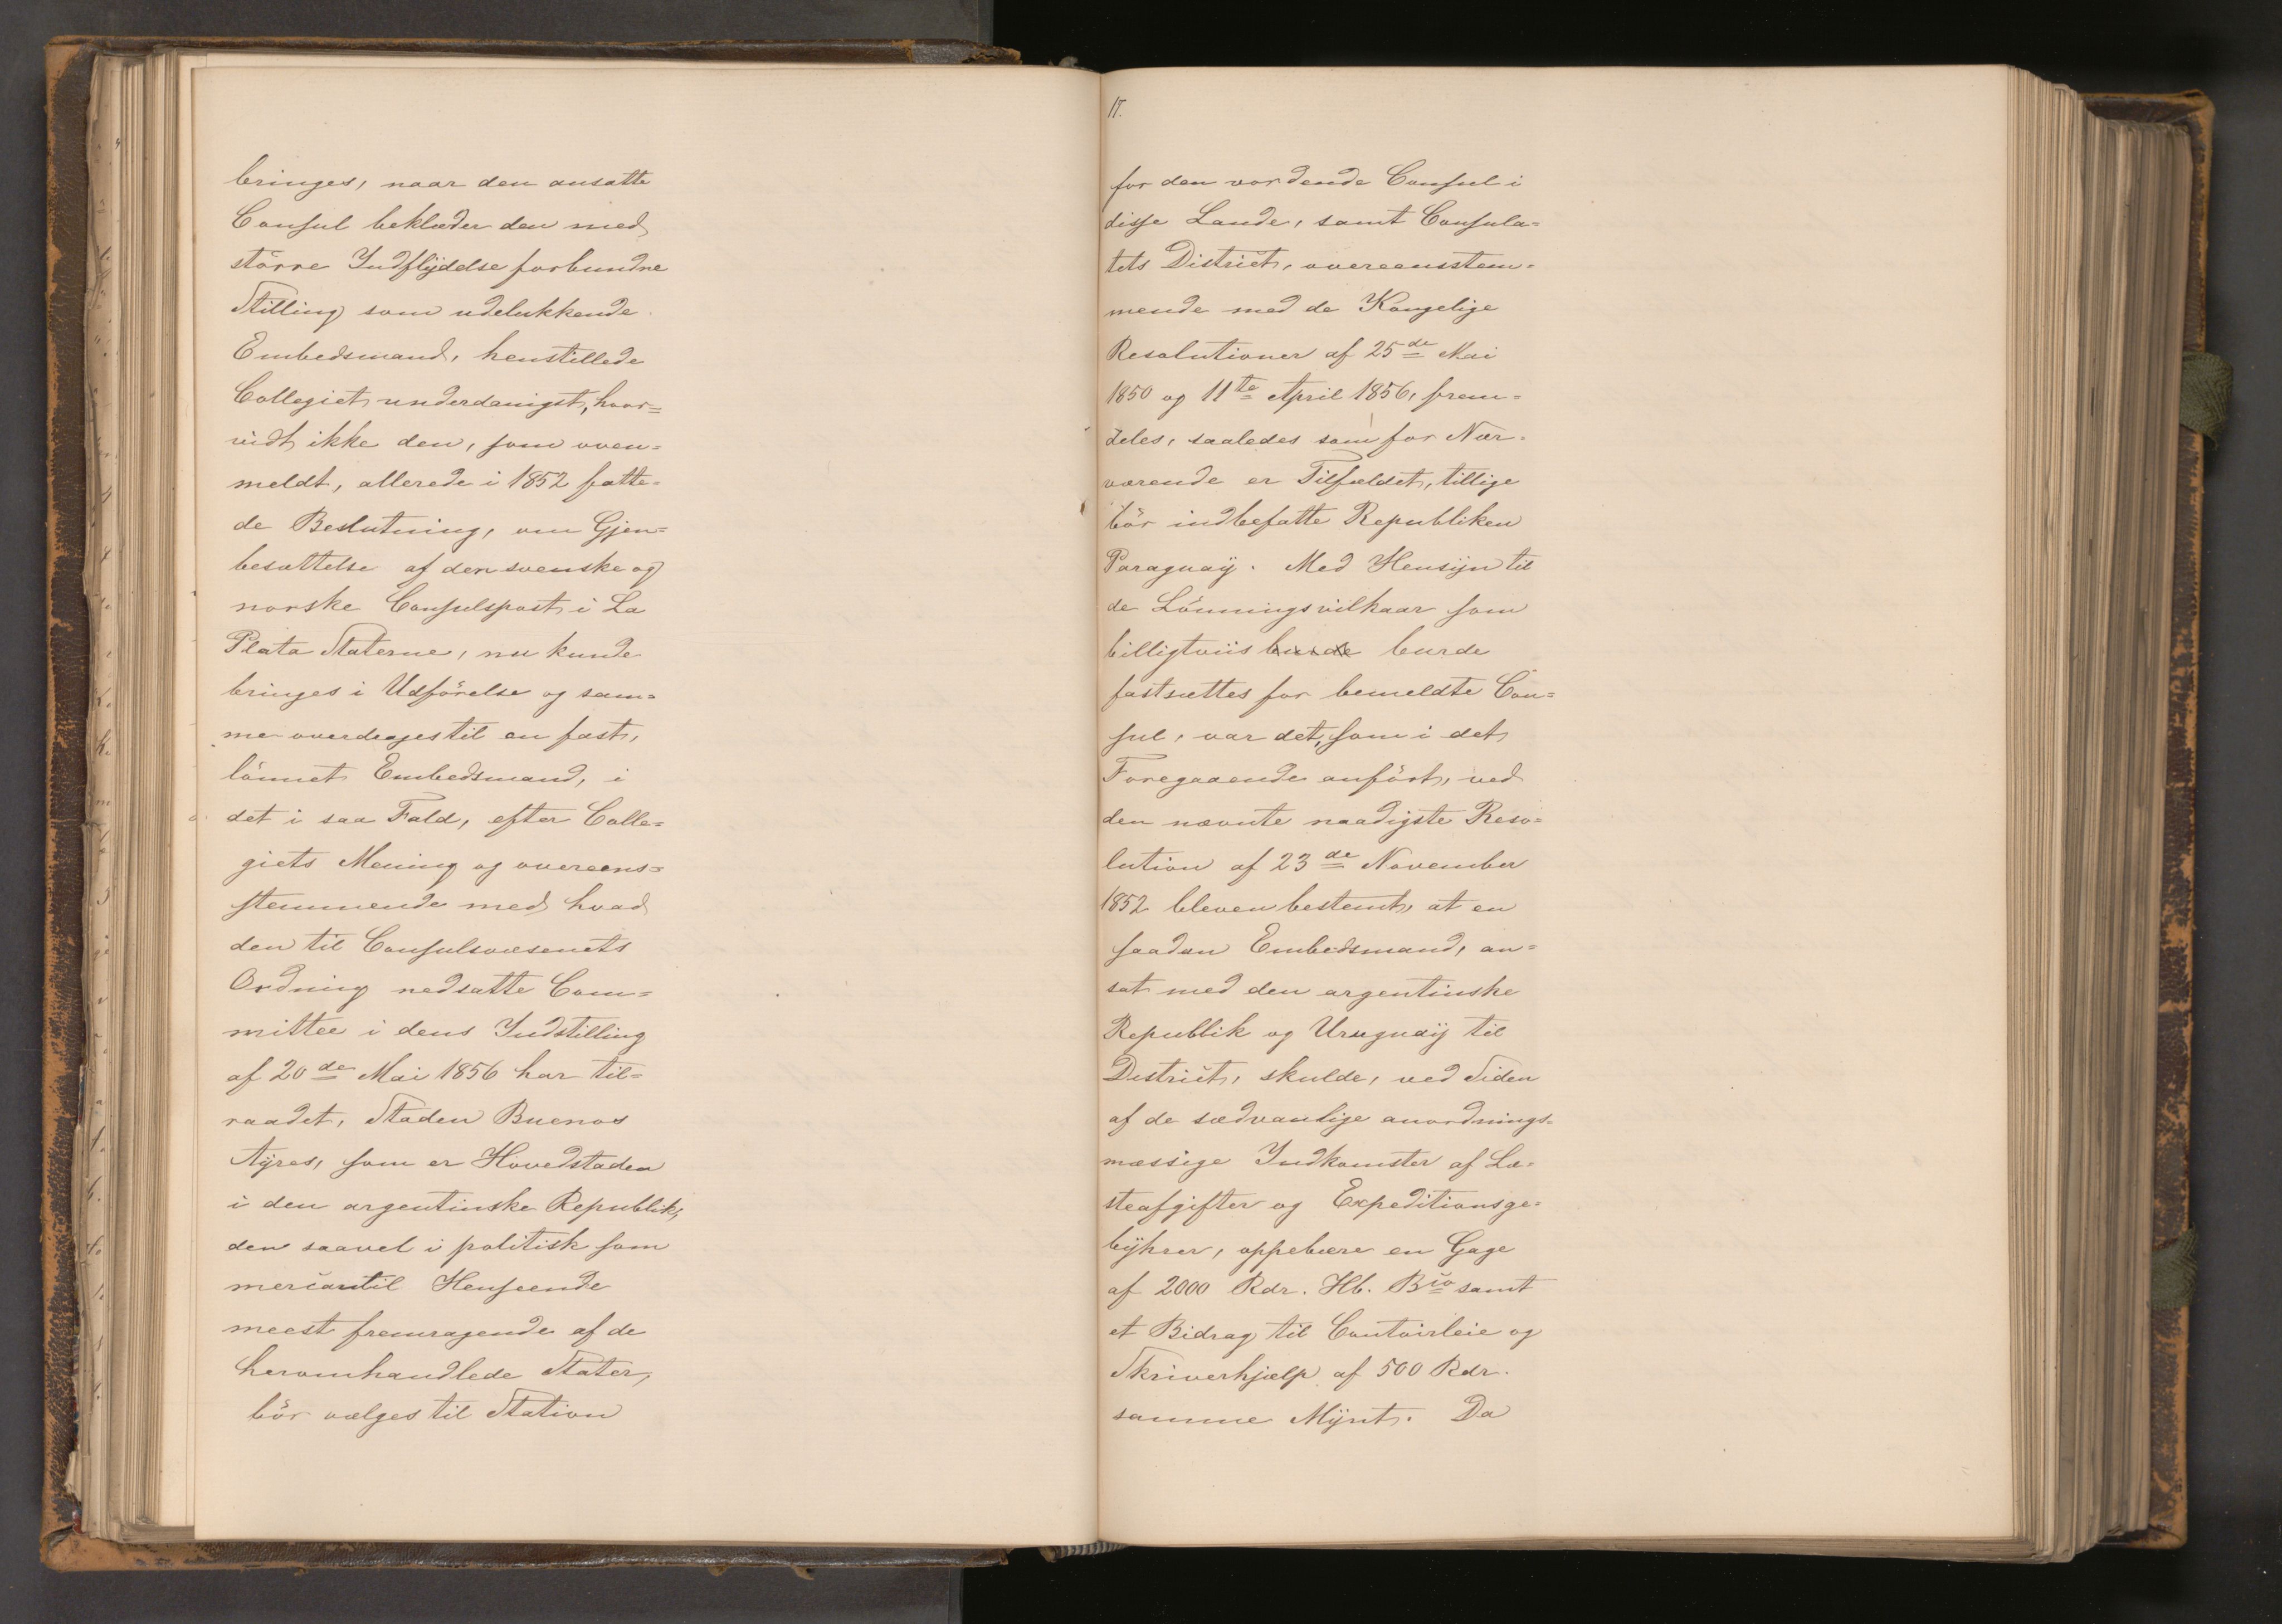 bringes, naar den ansatte
Consul beklæder den med
större Indflÿdelse forbundne
Stilling som udelukkende
Embedsmand, henstillede
Collegiet underdanigst, hvor=
vidt ikke den, som oven=
meldt, allerede i 1852 fatte=
de Beslutning, om Gjen=
besættelse af den svenske og
norske Consulspost i La
Plata Staterne, nu kunde
bringes i Udförelse og sam=
me overdrages til en fast,
lönnet Embedsmand, i
det i saa Fald, efter Colle=
giets Mening og overeens=
stemmende med hvad
den til Consulsvæsenets
Ordning nedsatte Com=
mittee i dens Indstilling
af 20de Mai 1856 har til=
raadet, Staden Buenos
Aÿres, som er Hovedstaden
i den argentinske Republik,
den saavel i politisk som
mercantil Henseende
meest fremragende af de
heromhandlede Stater,
bör vælges til Station
17.
for den vordende Consul i
disse Lande, samt Consula=
tets District, overeensstem=
mende med de Kongelige
Resolutioner af 25de Mai
1850 og 11te April 1856, frem=
deles, saaledes som for Nær=
værende er Tilfældet, tillige
bör indbefatte Republiken
Paraguaÿ. Med Hensÿn til
de Lönningsvilkaar som
billigtviis burde burde
fastsættes for bemeldte Con=
sul, var det, som i det
Foregaaende anfört, ved
den nævnte naadigste Reso=
lution af 23de November
1852 bleven bestemt, at en
saadan Embedsmand, an=
sat med den argentinske
Republik og Uruguaÿ til
District, skulde, ved Siden
af de sædvanlige anordnings=
mæssige Indkomster af Læ=
steafgifter og Expeditionsge=
bÿhrer, oppebære en Gage
af 2000 Rdr. Hb. Bco samt
et Bidrag til Contoirleie og
Skriverhjælp af 500 Rdr.
samme Mÿnt. Da